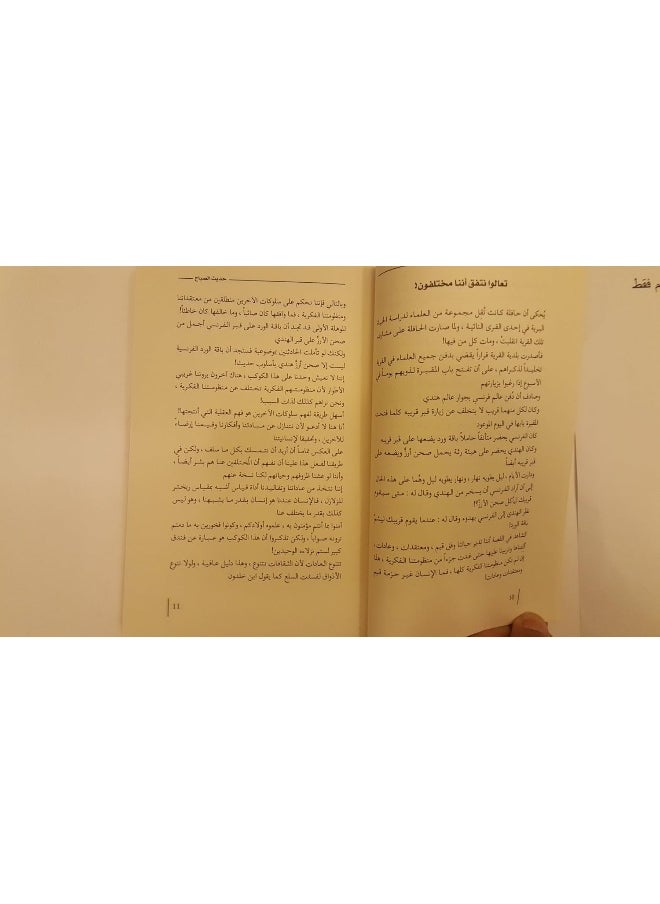 تعالوا نتفق أننا مختلفون!
يُحكى أن حافلة كانت تُقل مجموعة من العلماء لدراسة الحياة
البرية في إحدى القرى النائية ، ولما صارت الحافلة على مشارف
تلك القرية انقلبت ، ومات كل من فيها!
فأصدرت بلدية القرية قراراً يقضي بدفن جميع العلماء في القرية
تخليداً لذكراهم ، على أن تفتح باب المقبرة لذويهم يوماً في
الأسبوع إذا رغبوا بزيارتهم
وصادف أن دُفن عالم فرنسي بجوار عالم هندي
وكان لكل منهما قريب لا يتخلف عن زيارة قبر قريبه كلما فتحت
المقبرة بابها في اليوم الموعود
كان الفرنسي يحضر متأنقاً حاملاً باقة ورد يضعها على قبر قريبه
وكان الهندي يحضر على هيئة رثة يحمل صحن أرزّ ويضعه على
قبر قريبه أيضاً
ودارت الأيام ، ليل يطويه نهار ، ونهار يطويه ليل وهُما على هذه الحال
إلى أن أراد الفرنسي أن يسخر من الهندي وقال له : متى سيقوم
قريبك ليأكل صحن الأرزّ؟!
نظر الهندي إلى الفرنسي بهدوء وقال له : عندما يقوم قريبك ليشمّ
باقة الورد!
الشاهد في القصة أننا ندير حياتنا وفق قيم ، ومعتقدات ، وعادات
ألفناها وتربينا عليها حتى غدت جزءاً من منظومتنا الفكرية ، هذا
إن لم تكن منظومتنا الفكرية كلها ، فما الإنسان غير حزمة قيم
ومعتقدات وعادات!
10
حديث الصباح
وبالتالي فإننا نحكم على سلوكات الآخرين منطلقين من معتقداتنا
ومنظومتنا الفكرية ، فما وافقها كان صائباً ، وما خالفها كان خاطئاً!
للوهلة الأولى قد تجد أن باقة الورد على قبر الفرنسي أجمل من
صحن الأرزّ على قبر الهندي
ولكنك لو تأملت الحادثتين بموضوعية فستجد أن باقة الورد الفرنسية
ليست إلا صحن أرزّ هندي بأسلوب حديث!
إننا لا نعيش وحدنا على هذا الكوكب ، هناك آخرون يروننا غريبي
الأطوار لأن منظومتهم الفكرية تختلف عن منظومتنا الفكرية ،
ونحن نراهم كذلك لذات السبب!
أسهل طريقة لفهم سلوكات الآخرين هو فهم العقلية التي أنتجتها!
أنا هنا لا أدعو لأن نتنازل عن مبادئنا وأفكارنا وقيمنا إرضاءً
للآخرين ، وتحقيقاً لإنسانيتنا
على العكس تماماً أن أريد أن نتمسك بكل منا سلف ، ولكن في
طريقنا لفعل هذا علينا أن نفهم أن المختلفين عنا هم بشر أيضاً ،
وأننا لو عشنا ظروفهم وحياتهم لكنا نسخة عنهم
إننا نتخذ من عاداتنا وتقاليدنا أداة قياس أشبه بمقياس ريختر
للزلازل ، فالإنسان عندنا هو إنسان بقدر ما يشبهنا ، وهو ليس
كذلك بقدر ما يختلف عنا
آمنوا بما أنتم مؤمنون به ، علموه أولادكم ، وكونوا فخورين به ما دمتم
ترونه صواباً ، ولكن تذكروا أن هذا الكوكب هو عبارة عن فندق
كبير لستم نزلاءه الوحيدين!
تتنوع العادات لأن الثقافات تتنوع ، وهذا دليل عافية ، ولولا تنوع
الأذواق لفسدت السلع كما يقول ابن خلدون
11
م فقط